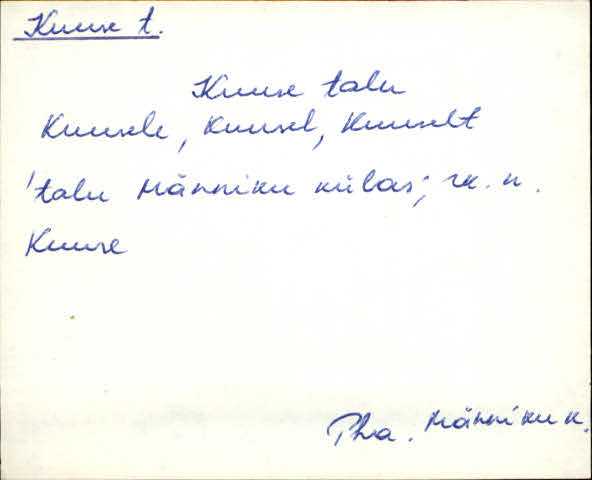 Kuuse t.
Kuuse talu
Kuusele, Kuusel, Kuuselt
'talu Männiku külas', rk. n.
Kuuse
Pha. Männiku k.